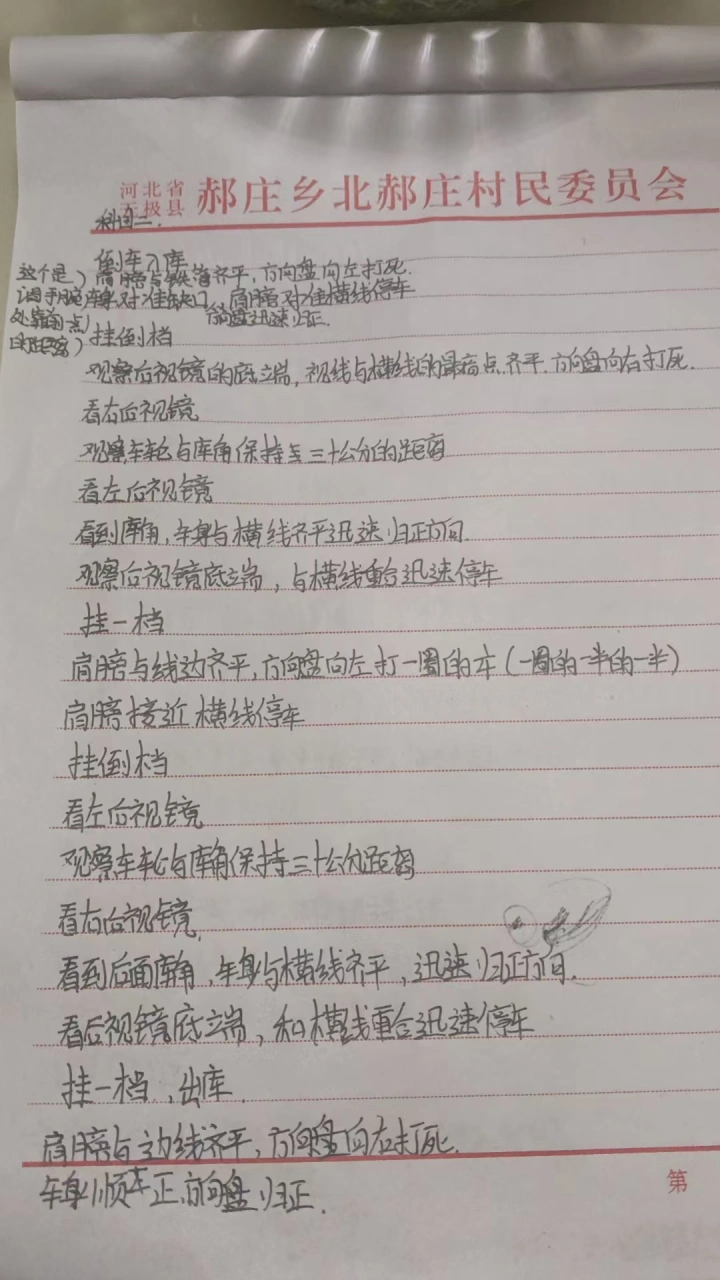 河北省
无极县
郝庄乡北郝庄村民委员会
科目二.
倒车入库
这个是
肩膀与铁管齐平,方向盘向左打死.
车身对准缺口,肩膀对准横线停车
处靠前一点)
方向盘迅速归正.
挂倒档
观察后视镜的底立端,视线与横线的最高点.齐平.方向盘向右打死.
看右后视镜
观察车轮与库角保持三十公分的距离
看左后视镜
看到库角,车身与横线齐平迅速归正方向.
观察后视镜底立端,与横线重合迅速停车
挂一档
肩膀与线边齐平,方向盘向左打一圈的本(一圈的一半的一半)
肩膀接近横线停车
挂倒档
看左后视镜
观察车轮与库角保持三十公分距离
看右后视镜.
看到后面库角,车身与横线齐平,迅速归正方向.
看后视镜底立端,和横线重合迅速停车
挂一档,出库.
肩膀与边线齐平,方向盘向右打死.
车身顺车正,方向盘归正.
第